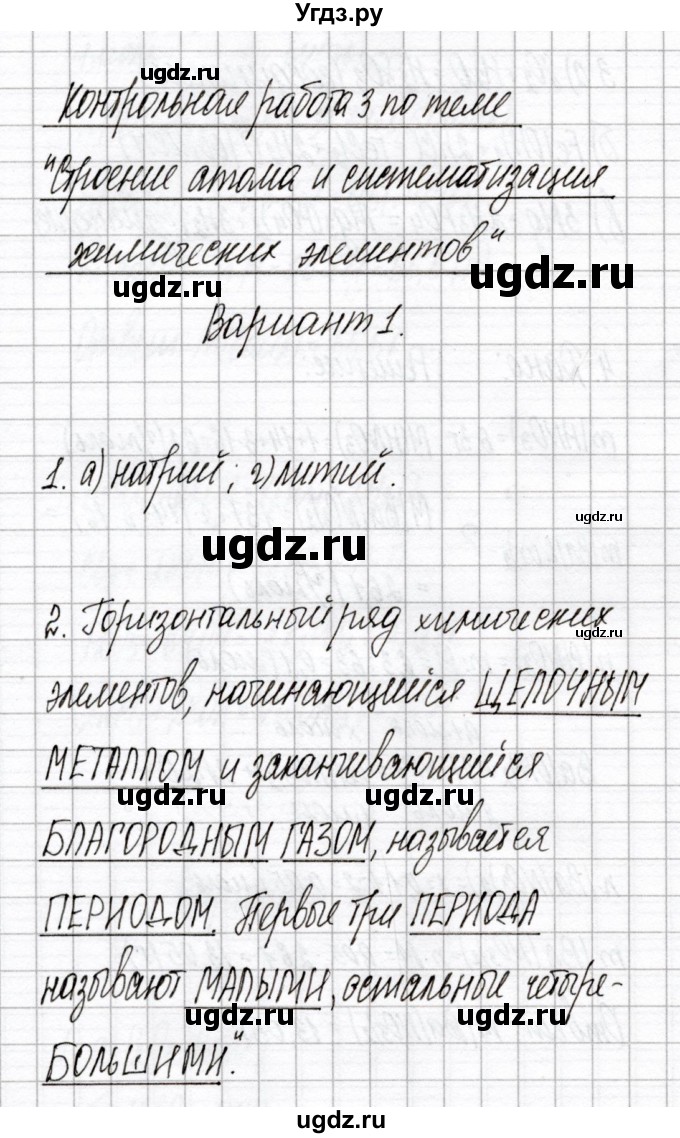 Угдз.ру
ugdz.ru
Контрольная работа 3 по теме
"Строение атома и систематизация
химических элементов"
ugdz.ru ugdz.ru
Вариант 1.
1. а) натрий; г) литий.
ugdz.ru
ugdz.ru
2. Горизонтальный ряд химических
ugdz.ru
элементов, начинающийся ЩЕЛОЧНЫМ
МЕТАЛЛОМ и заканчивающийся
ugdz.ru ugdz.ru
БЛАГОРОДНЫМ ГАЗОМ, называется
ПЕРИОДОМ. Первые три ПЕРИОДА
называют МАЛЫМИ, остальные четыре-
ugdz.ru ugdz.ru
БОЛЬШИМИ."
ugdz.ru